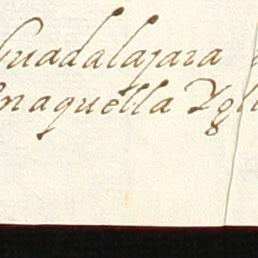 Guadalajara
naquella Ygl